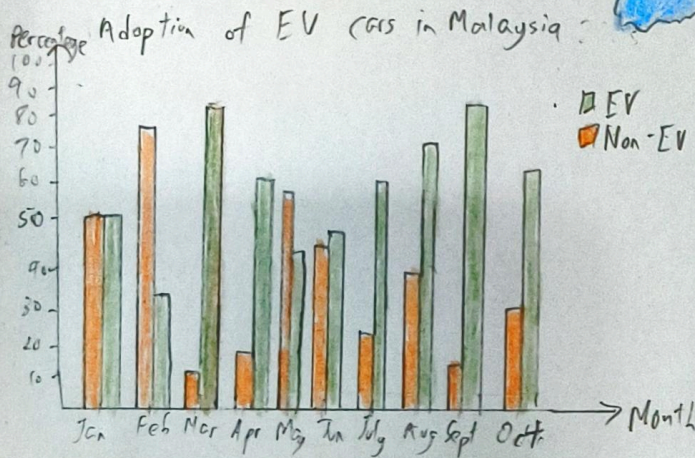 Adoption of EV cars in Malaysia :
Percentage
100
90
80
70
60
50
40
30
20
10
EV
Non-EV
Jan Feb Mar Apr May Jun July Aug Sept Oct
Month